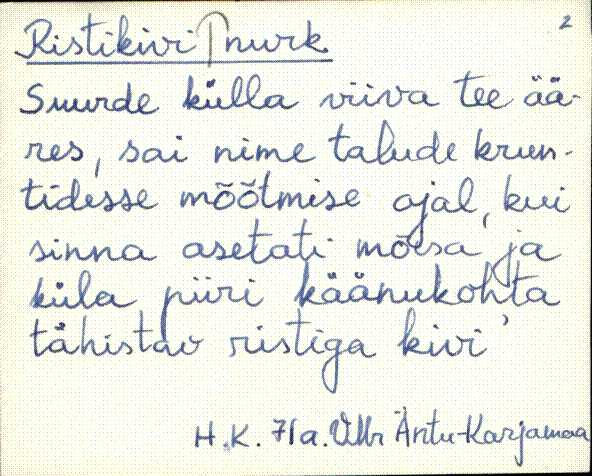 Ristikivi nurk 2
Suurde külla viiva tee ää-
res, sai nime talude krun-
tidesse mõõtmise ajal, kui
sinna asetati mõisa ja
küla piiri käänukohta
tähistav ristiga kivi
H. K. 71a. Ants-Karjamaa